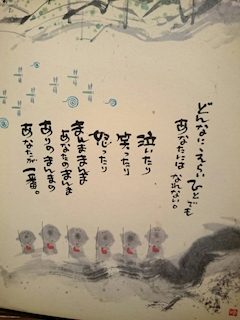 どんなにえらいひとでも
あなたにはなれない。
泣いたり
笑ったり
怒ったり
まんままんま
あなたのまんま
ありのまんまの
あなたが一番。